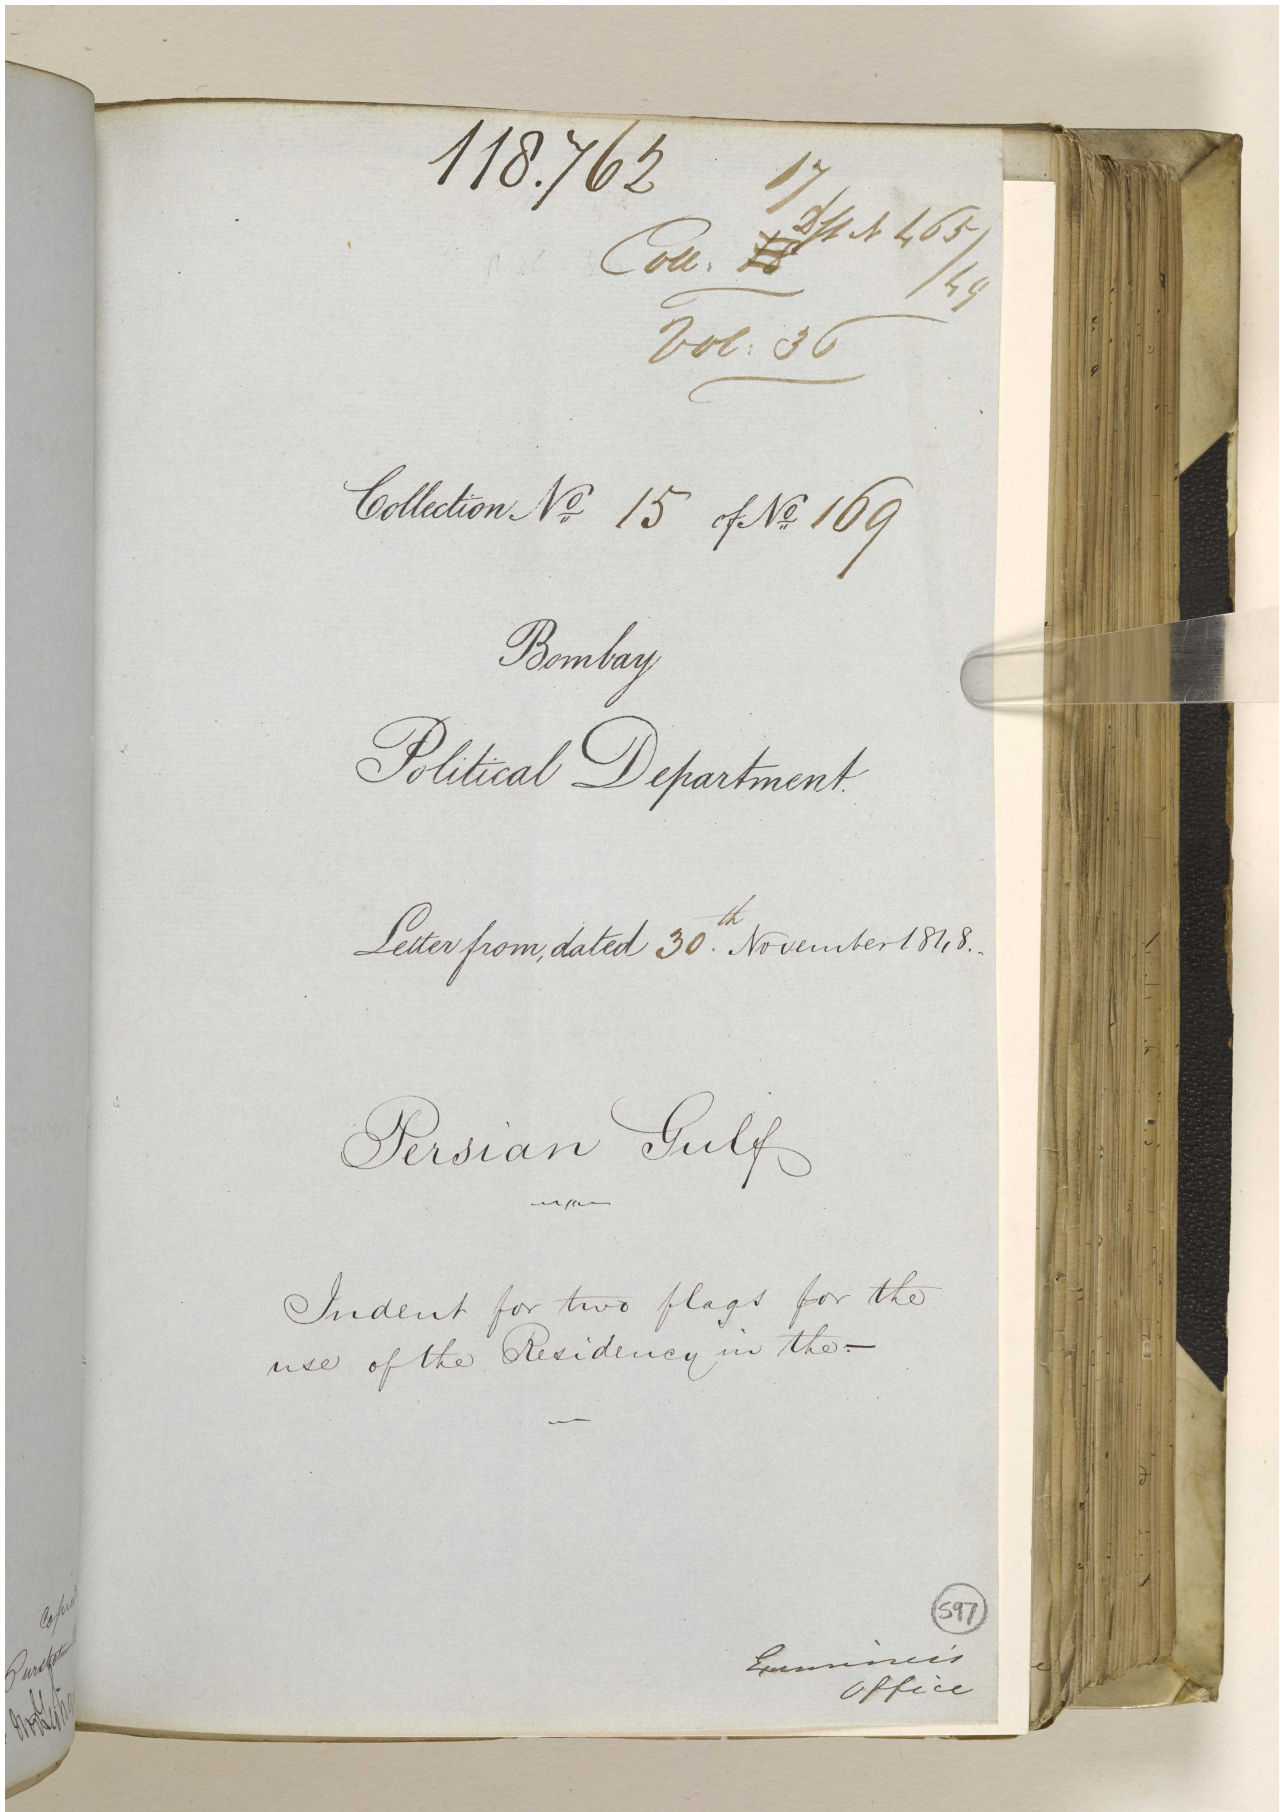 118.762
17
Coll: 18 Dft No 465/
/49
Vol: 36
Collection No 15 of No 169
Bombay
Political Department.
Letter from, dated 30th November 1848.
Persian Gulf
Indent for two flags for the
use of the Residency in the—
597
Examiner's
Office